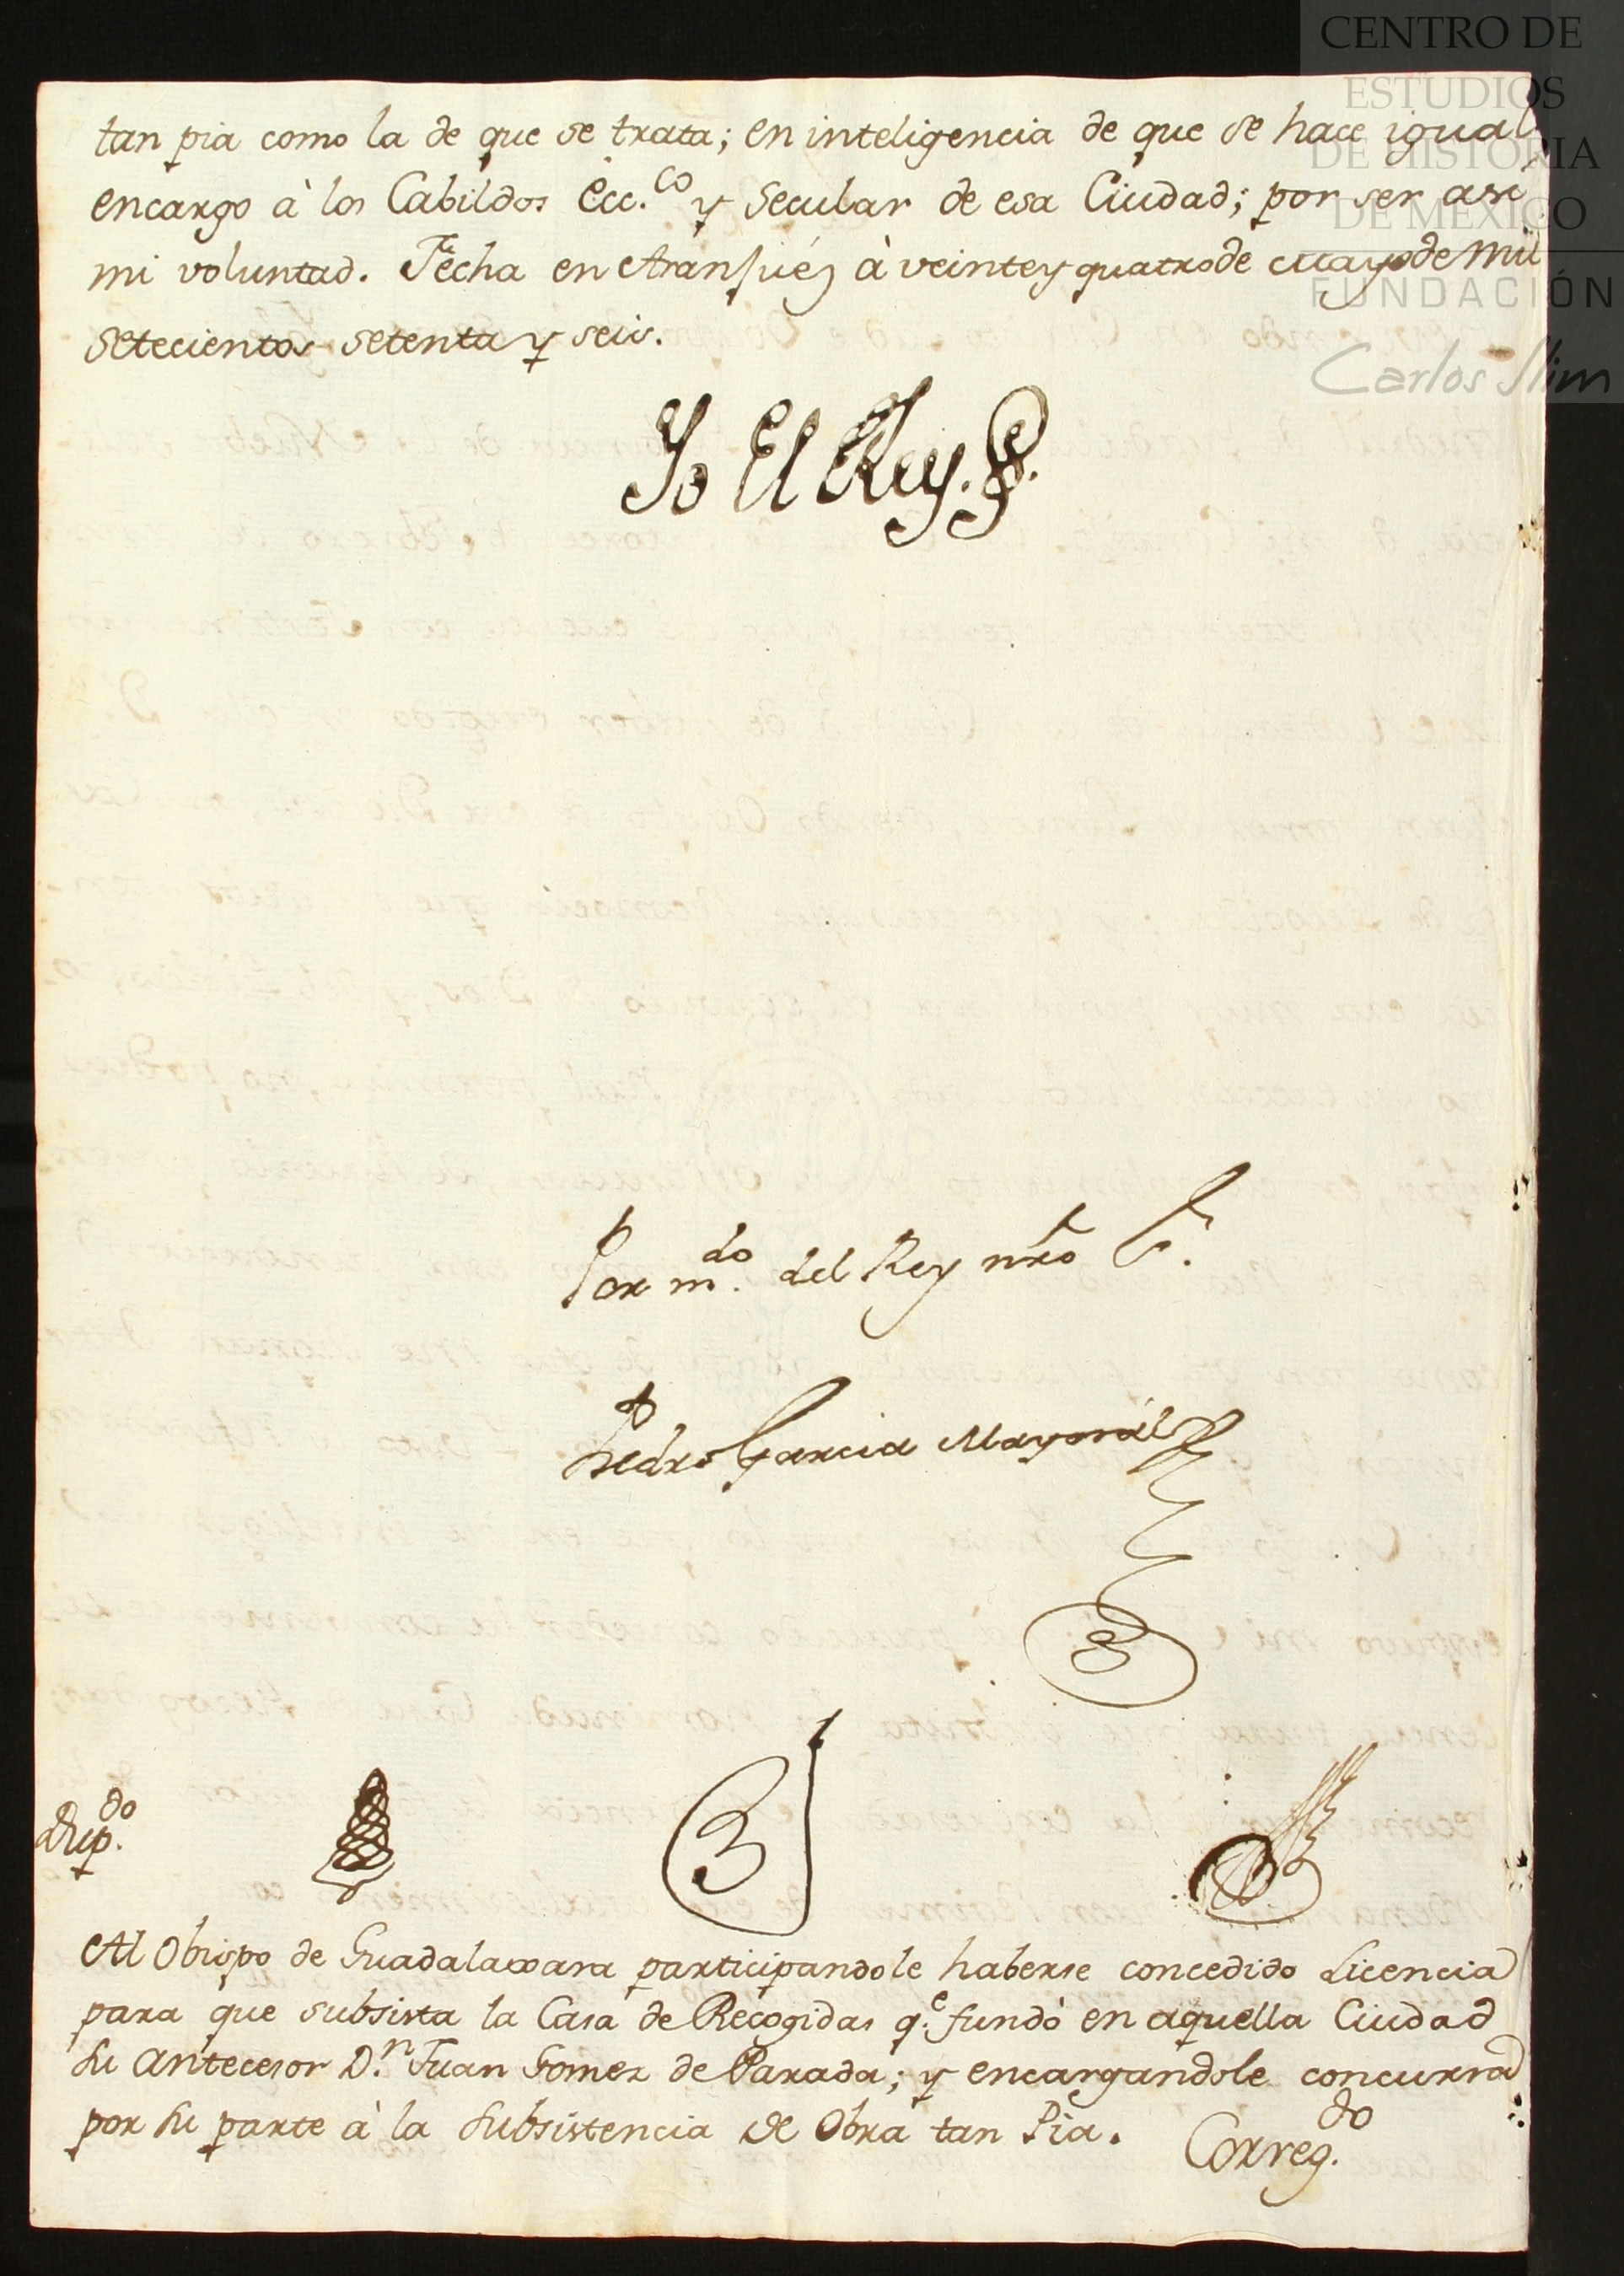 CENTRO DE
ESTUDIOS
DE HISTORIA
DE MÉXICO
FUNDACIÓN
Carlos Slim
tan pia como la de que se trata; en inteligencia de que se hace igual
encargo à los Cabildos Ecc.co y Secular de esa Ciudad; por ser asi
mi voluntad. Fecha en Aranjuéz à veinte y quatro de Mayo de mil
setecientos setenta y seis.
Yo El Rey.
Por m.do del Rey nro S.r
Pedro Garcia Mayorál
Dup.do
Al Obispo de Guadalaxara participandole haberse concedido Licencia
para que subsista la Casa de Recogidas q.e fundò en aquella Ciudad
su antecesor D.n Juan Gomez de Parada; y encargandole concurra
por su parte à la subsistencia de Obra tan Pia.
Correg.do